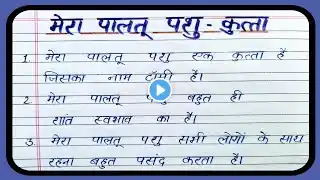 मेरा पालतू पशु - कुत्ता
1. मेरा पालतू पशु एक कुत्ता है
जिसका नाम टॉमी है।
2. मेरा पालतू पशु बहुत ही
शांत स्वभाव का है।
3. मेरा पालतू पशु सभी लोगों के साथ
रहना बहुत पसंद करता है।